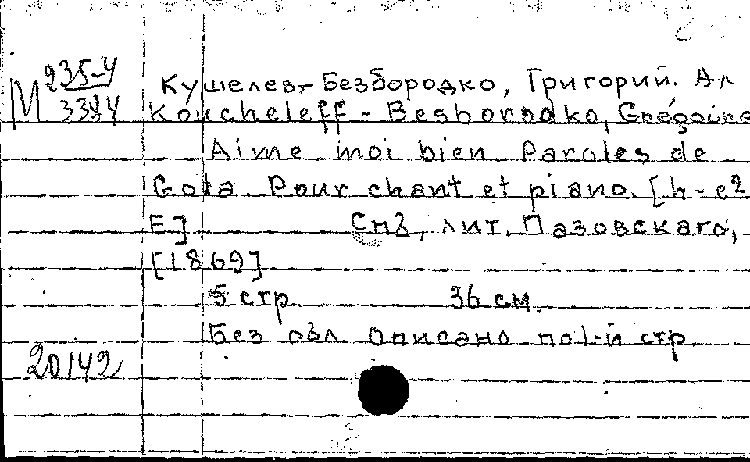 М 235-4
3344
Кушелев-Безбородко, Григорий. Ал
Koucheleff-Besborodko, Grégoire
Aime moi bien Paroles de
Gola. Pour chant et piano. [h-e2
E.] Спб, лит. Пазовскаго,
[1869]
5 стр. 36 см.
Без обл. Описано по 1-й стр.
20142